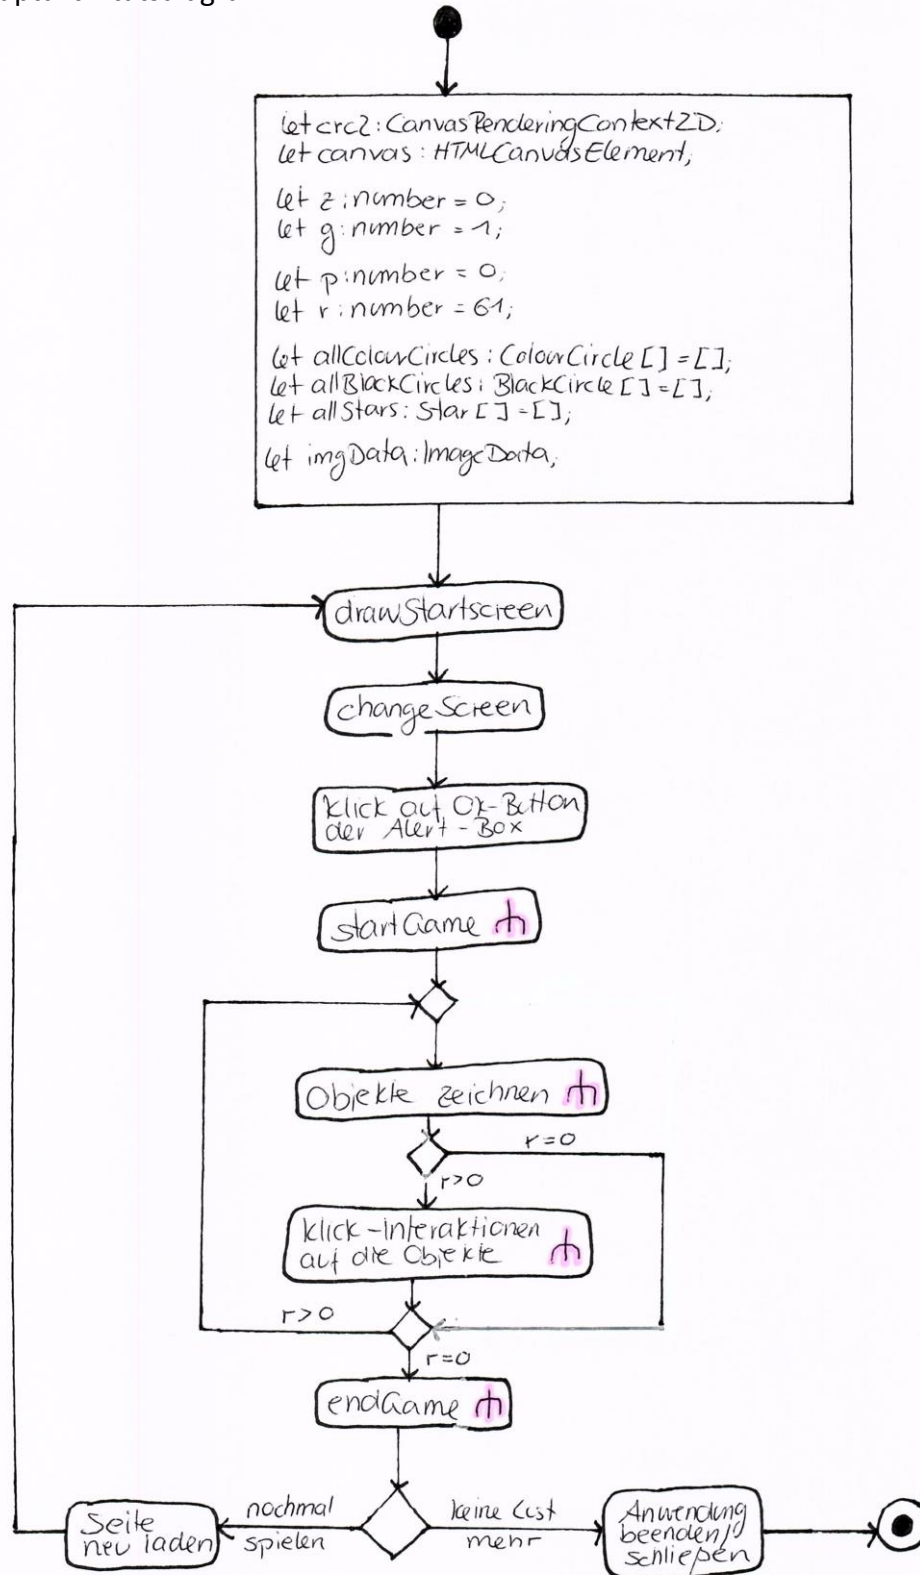 let crc2: CanvasRenderingContext2D;
let canvas: HTMLCanvasElement;
let z: number = 0;
let g: number = 1;
let p: number = 0;
let r: number = 61;
let allColourCircles: ColourCircle[] = [];
let allBlackCircles: BlackCircle[] = [];
let allStars: Star[] = [];
let imgData: ImageData;
drawStartscreen
changeScreen
Klick auf Ok-Button
der Alert-Box
startGame
Objekte zeichnen
r=0
r>0
Klick-Interaktionen
auf die Objekte
r>0
r=0
endGame
nochmal
spielen
keine Lust
mehr
Seite
neu laden
Anwendung
beenden/
schließen